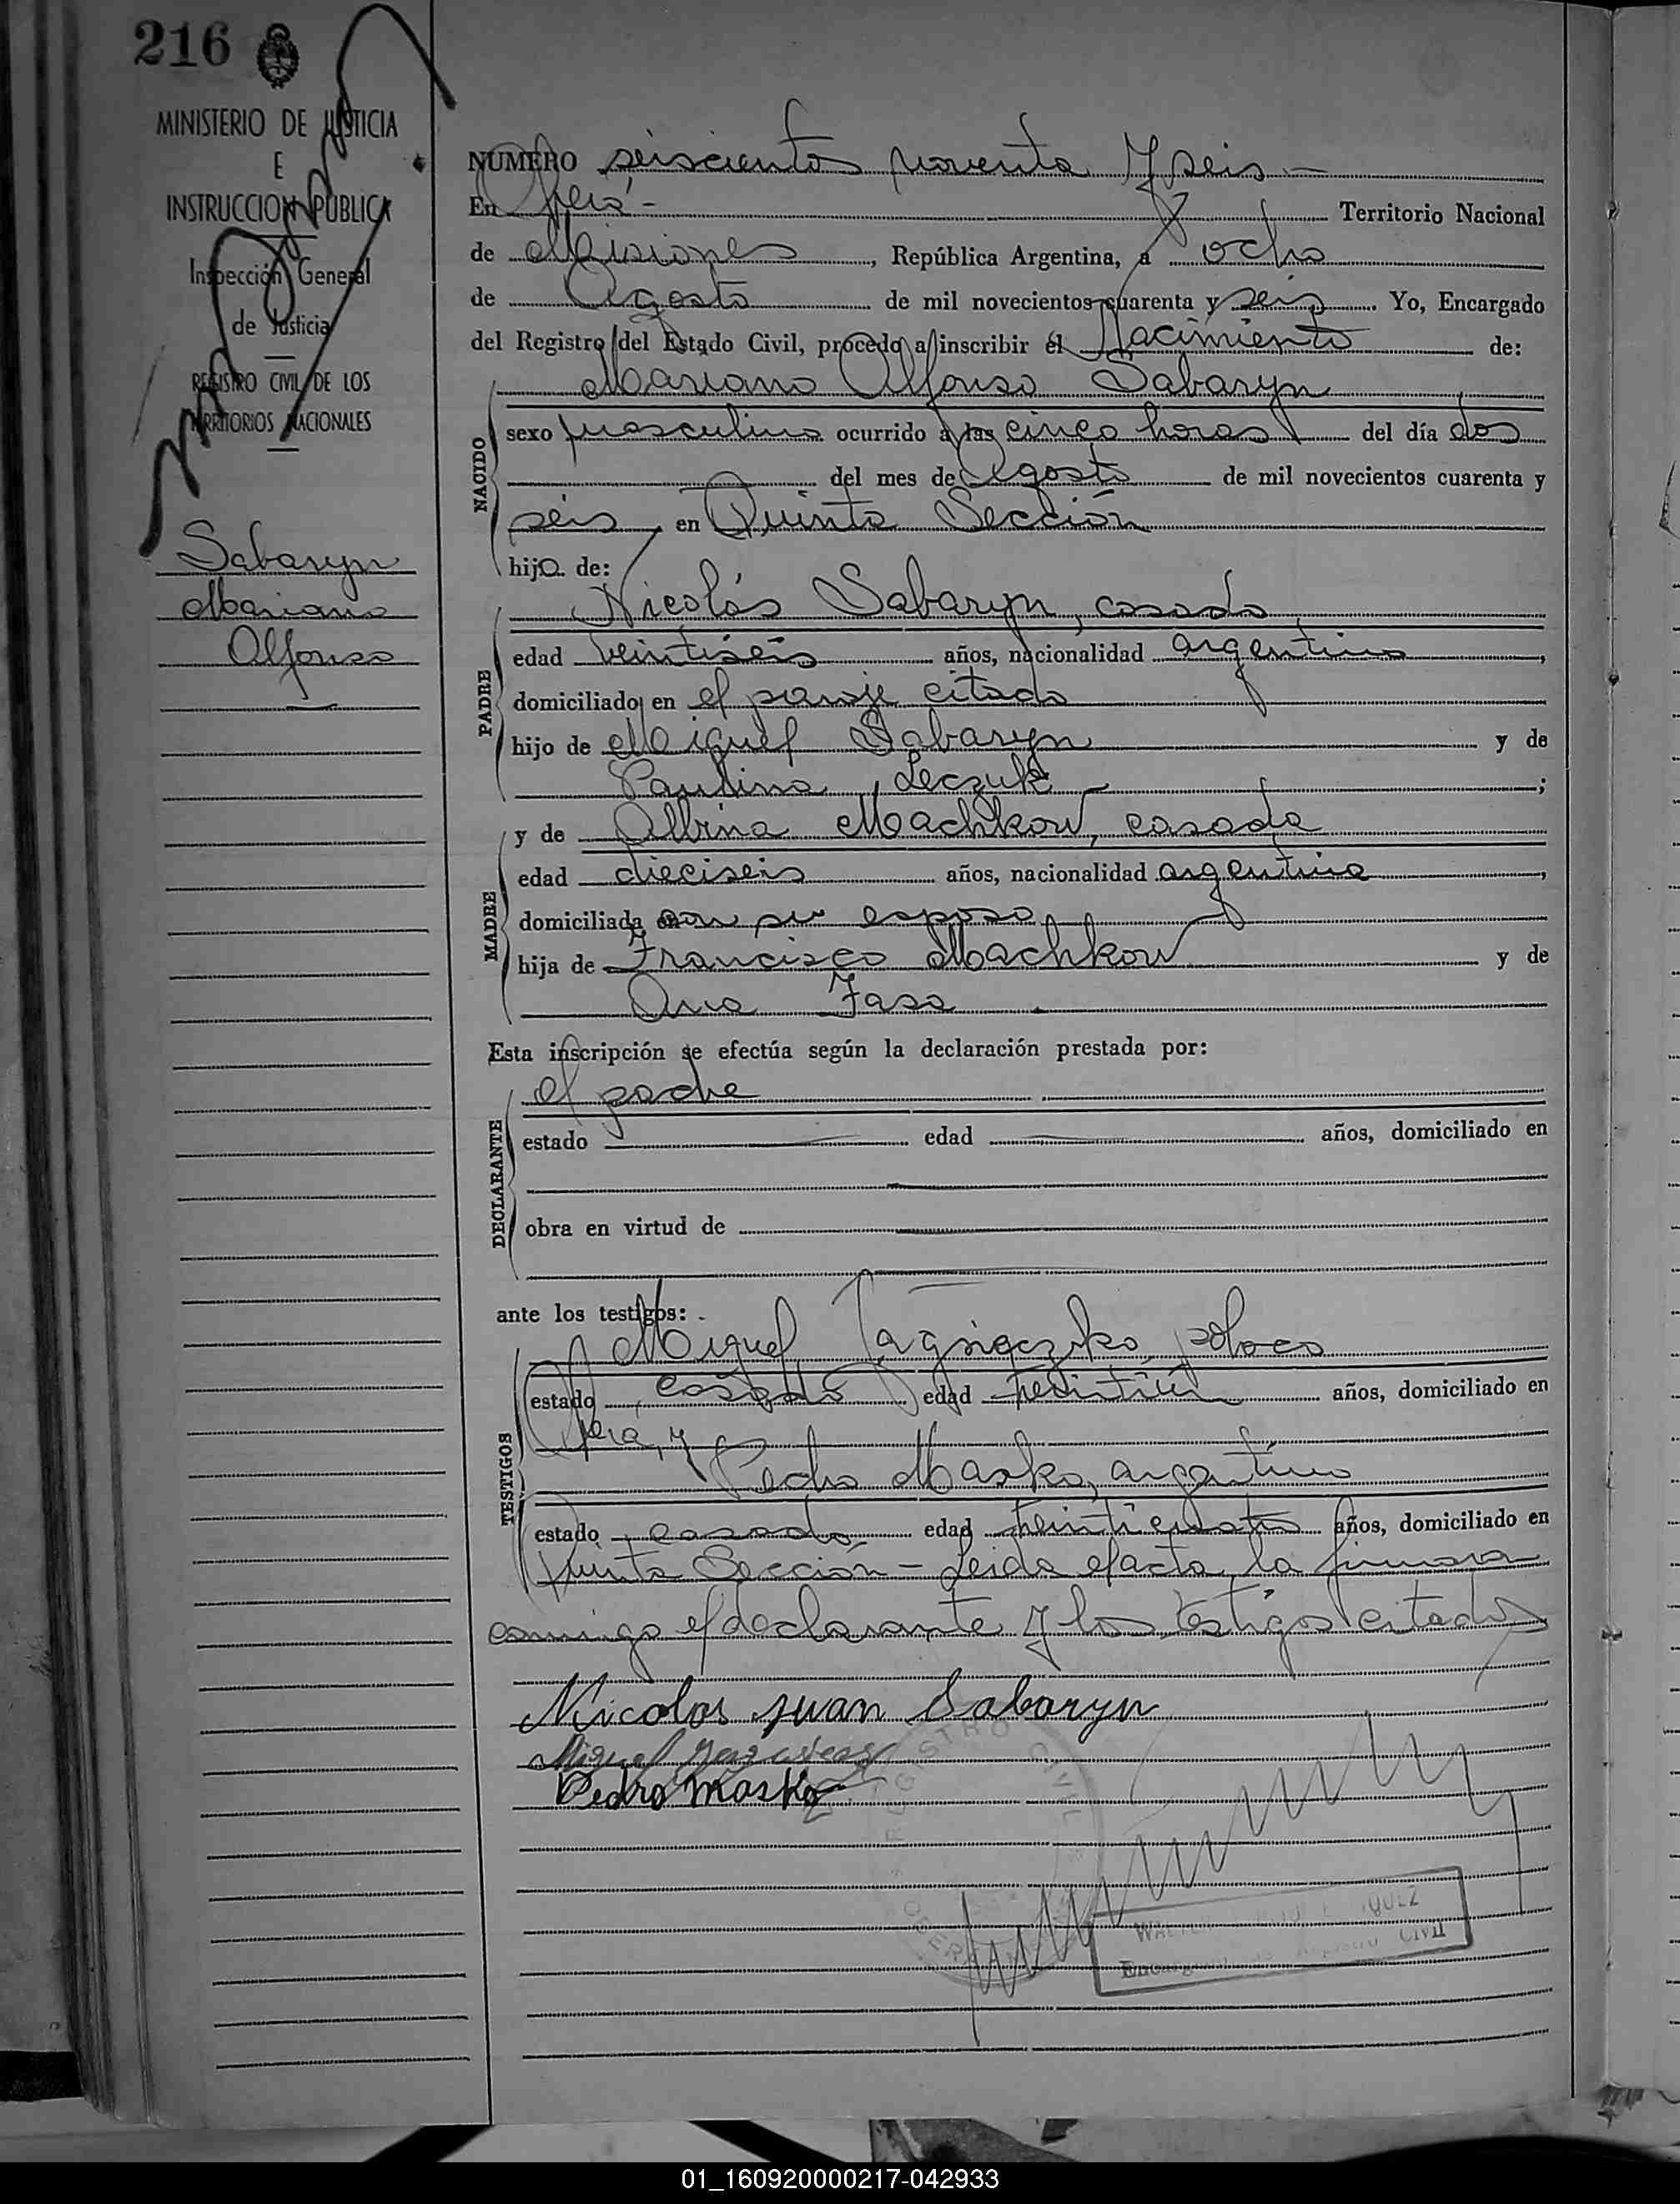 216
MINISTERIO DE JUSTICIA
E
INSTRUCCION PUBLICA
Inspección General
de Justicia
REGISTRO CIVIL DE LOS
TERRITORIOS NACIONALES
Sabaryn
Mariano
Alfonso
NUMERO seiscientos noventa y seis —
En Oberá - Territorio Nacional
de Misiones, República Argentina, a ocho
de Agosto de mil novecientos cuarenta y seis. Yo, Encargado
del Registro del Estado Civil, procedo a inscribir el Nacimiento de:
Mariano Alfonso Sabaryn
NACIDO
sexo masculino ocurrido a las cinco horas del día dos
del mes de Agosto de mil novecientos cuarenta y
seis, en Quinta Sección
hijo de:
Nicolás Sabaryn, casado
PADRE
edad veintiseis años, nacionalidad argentino,
domiciliado en el paraje citado
hijo de Miguel Sabaryn y de
Paulina Leczuk ;
y de Albina Machkow, casada
MADRE
edad dieciseis años, nacionalidad argentina,
domiciliada con su esposo
hija de Francisco Machkow y de
Ana Jasa
Esta inscripción se efectúa según la declaración prestada por:
el padre
DECLARANTE
estado edad años, domiciliado en
obra en virtud de
ante los testigos:
Miguel polaco
TESTIGOS
estado casado edad años, domiciliado en
Oberá, y
Pedro Masko, argentino
estado casado edad veinticuatro años, domiciliado en
Quinta Sección - Leida el acta, la firman
conmigo el declarante y los testigos citados
Nicolas Juan Sabaryn
Miguel
Pedro Masko
REGISTRO CIVIL
OBERA
Encargado Registro Civil
01_160920000217-042933